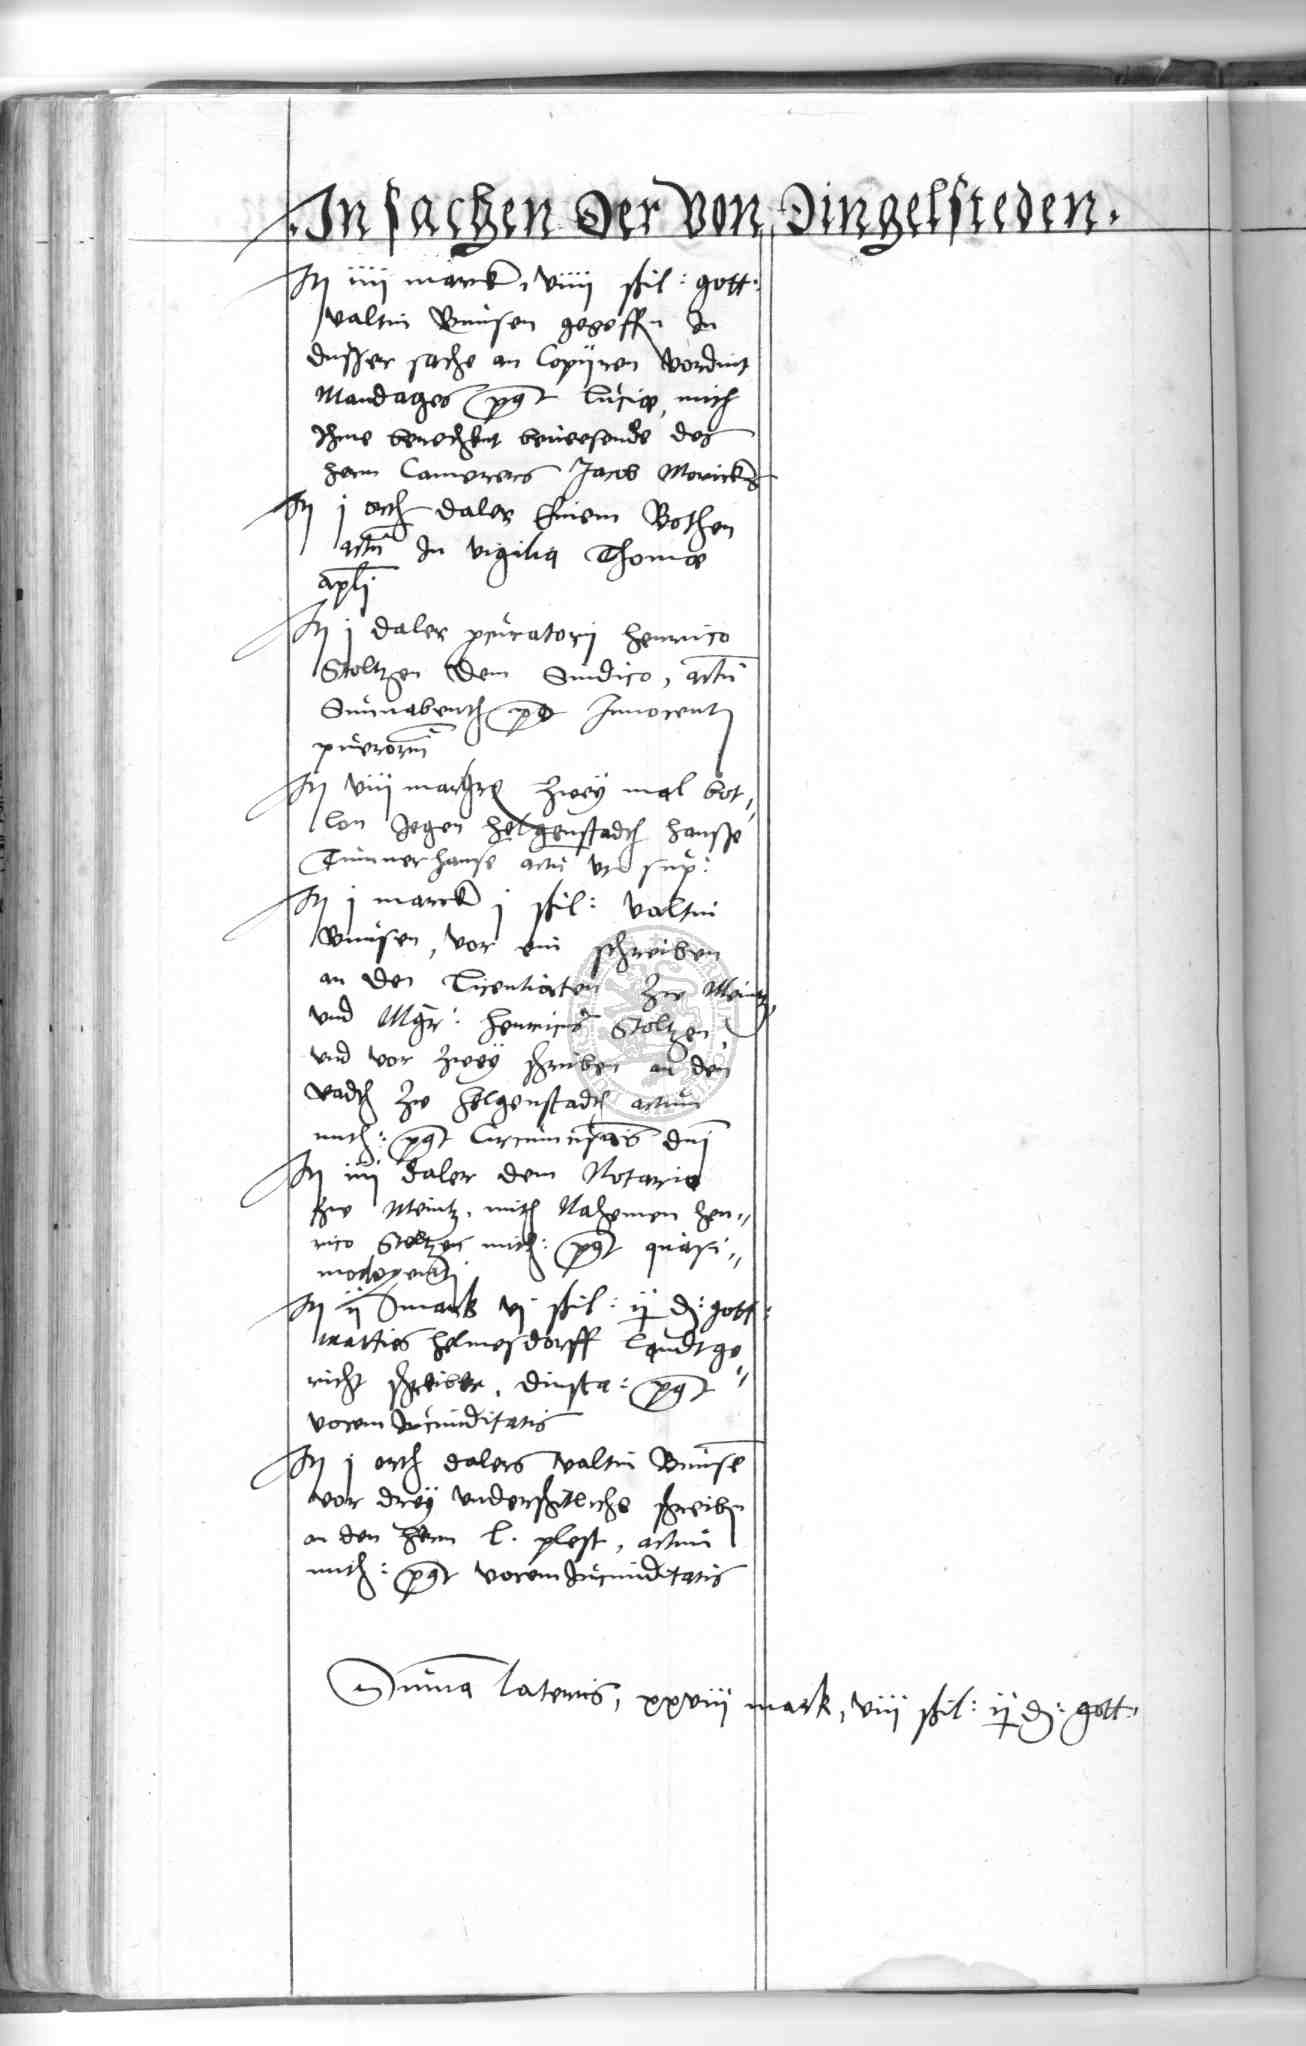 .In sachen Der Von Dingelsteden.
It iiii marck, viiii ßil: gott:
valtin Bunsen gegeffn In
dusser sache an Copijren vordint
Mandages pst Lucie, mith
Ihme berechent beiwesende des
hern Camerers Jacob Morickes
It j orth daler Einem Bothen
actū In vigilia Thome
apli
It j daler pcuratorj henrico
Stoltzen dem Sindico, actū
Sunnabenth pst Innocentj
puerorum
It viiii margk zwey mal bot„
lon Jegen helgenstadth hansse
Timmerhanse actū vt sup:
It j marck j ßil: valtin
Bunsen, vor ein schreiben
an den Licentiaten zw Meintz,
vnd Mgr: henricus Stoltzen,
vnd vor zweÿ schriben an den
radth zw helgenstadth actum
mith: pst Circumcisiōis dnj
It iiij daler dem Notario
zw Meintz, mith Nahemen hen„
rico Stoltzen mith: pst quasi„
modogenitj
It ij mark vj ßil: ij d: gott:
matties helmesdorff Landtge„
richt schreiber, dinsta: pst
vocem Jucunditatis
It j orth dalers valtin Bunsē
vor dreÿ vnderschitliche schreibn
an den hern L. plest, actum
mith: pst vocem Jucunditatis
Suma lateris, xxviii mark, viii ßil: ij d: gott: